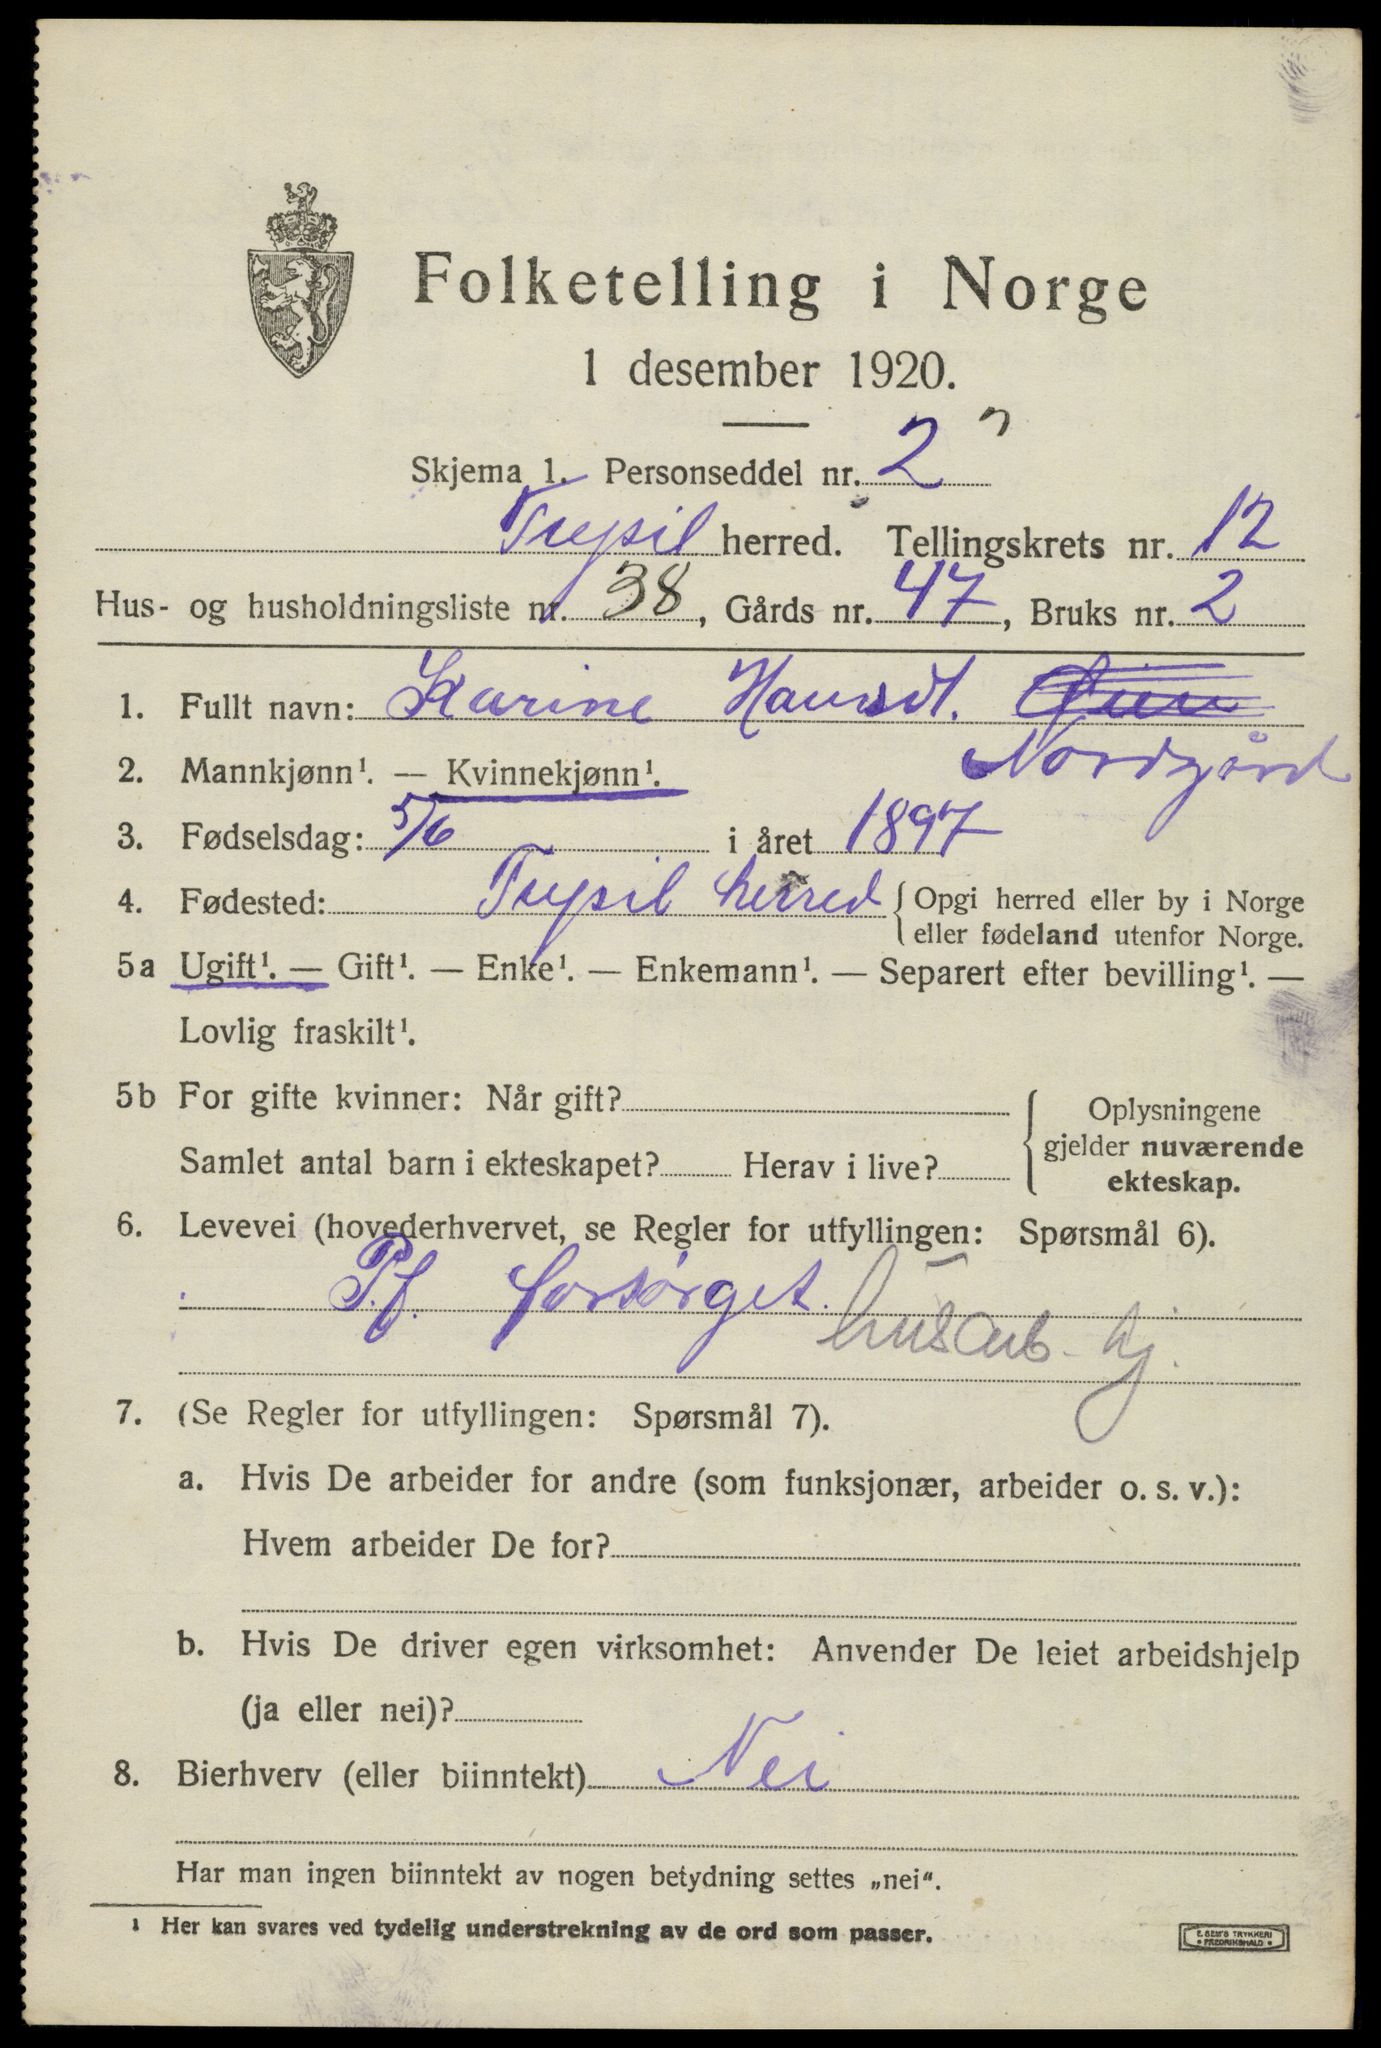 Folketelling i Norge
1 desember 1920.
Skjema 1. Personseddel nr. 2
Trysil herred. Tellingskrets nr. 12
Hus- og husholdningsliste nr. 38, Gårds nr. 47, Bruks nr. 2
1. Fullt navn: Karine Hansdt.
Nordgård
2. Mannkjønn¹. — Kvinnekjønn¹.
3. Fødselsdag: 5/6 i året 1897
4. Fødested: Trysil herred { Opgi herred eller by i Norge
eller fødeland utenfor Norge.
5a Ugift¹. — Gift¹. — Enke¹. — Enkemann¹. — Separert efter bevilling¹. —
Lovlig fraskilt¹.
5b For gifte kvinner: Når gift?
Samlet antal barn i ekteskapet? Herav i live?
{ Oplysningene
gjelder nuværende
ekteskap.
6. Levevei (hovederhvervet, se Regler for utfyllingen: Spørsmål 6).
P.f. forsørget. husarb. hj.
7. (Se Regler for utfyllingen: Spørsmål 7).
a. Hvis De arbeider for andre (som funksjonær, arbeider o. s. v.):
Hvem arbeider De for?
b. Hvis De driver egen virksomhet: Anvender De leiet arbeidshjelp
(ja eller nei)?
8. Bierhverv (eller biinntekt) Nei
Har man ingen biinntekt av nogen betydning settes „nei“.
¹ Her kan svares ved tydelig understrekning av de ord som passer.
E. SEM'S TRYKKERI
• FREDRIKSHALD •